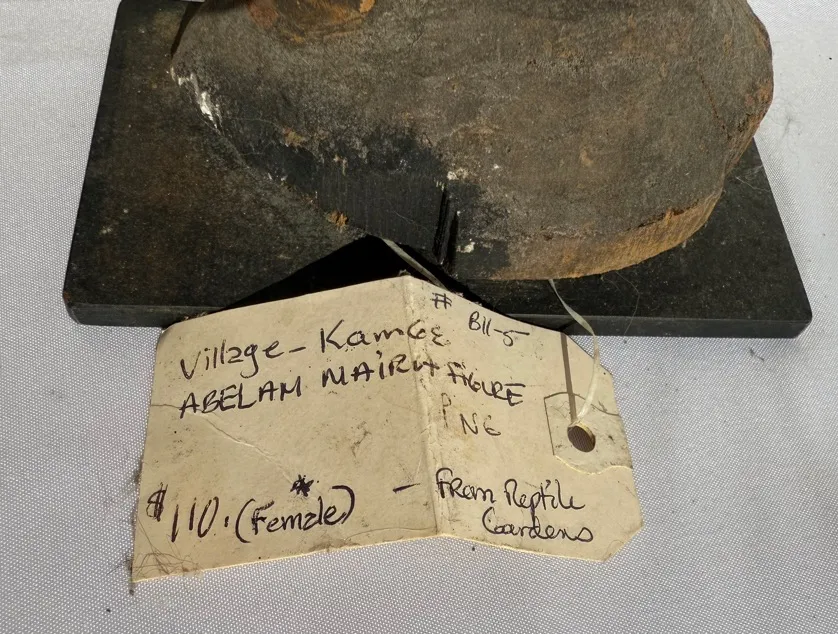 # B11-5
Village - Kamge
ABELAM MAIRA FIGURE
PNG
*
$110. (Female) - From Reptile
Gardens